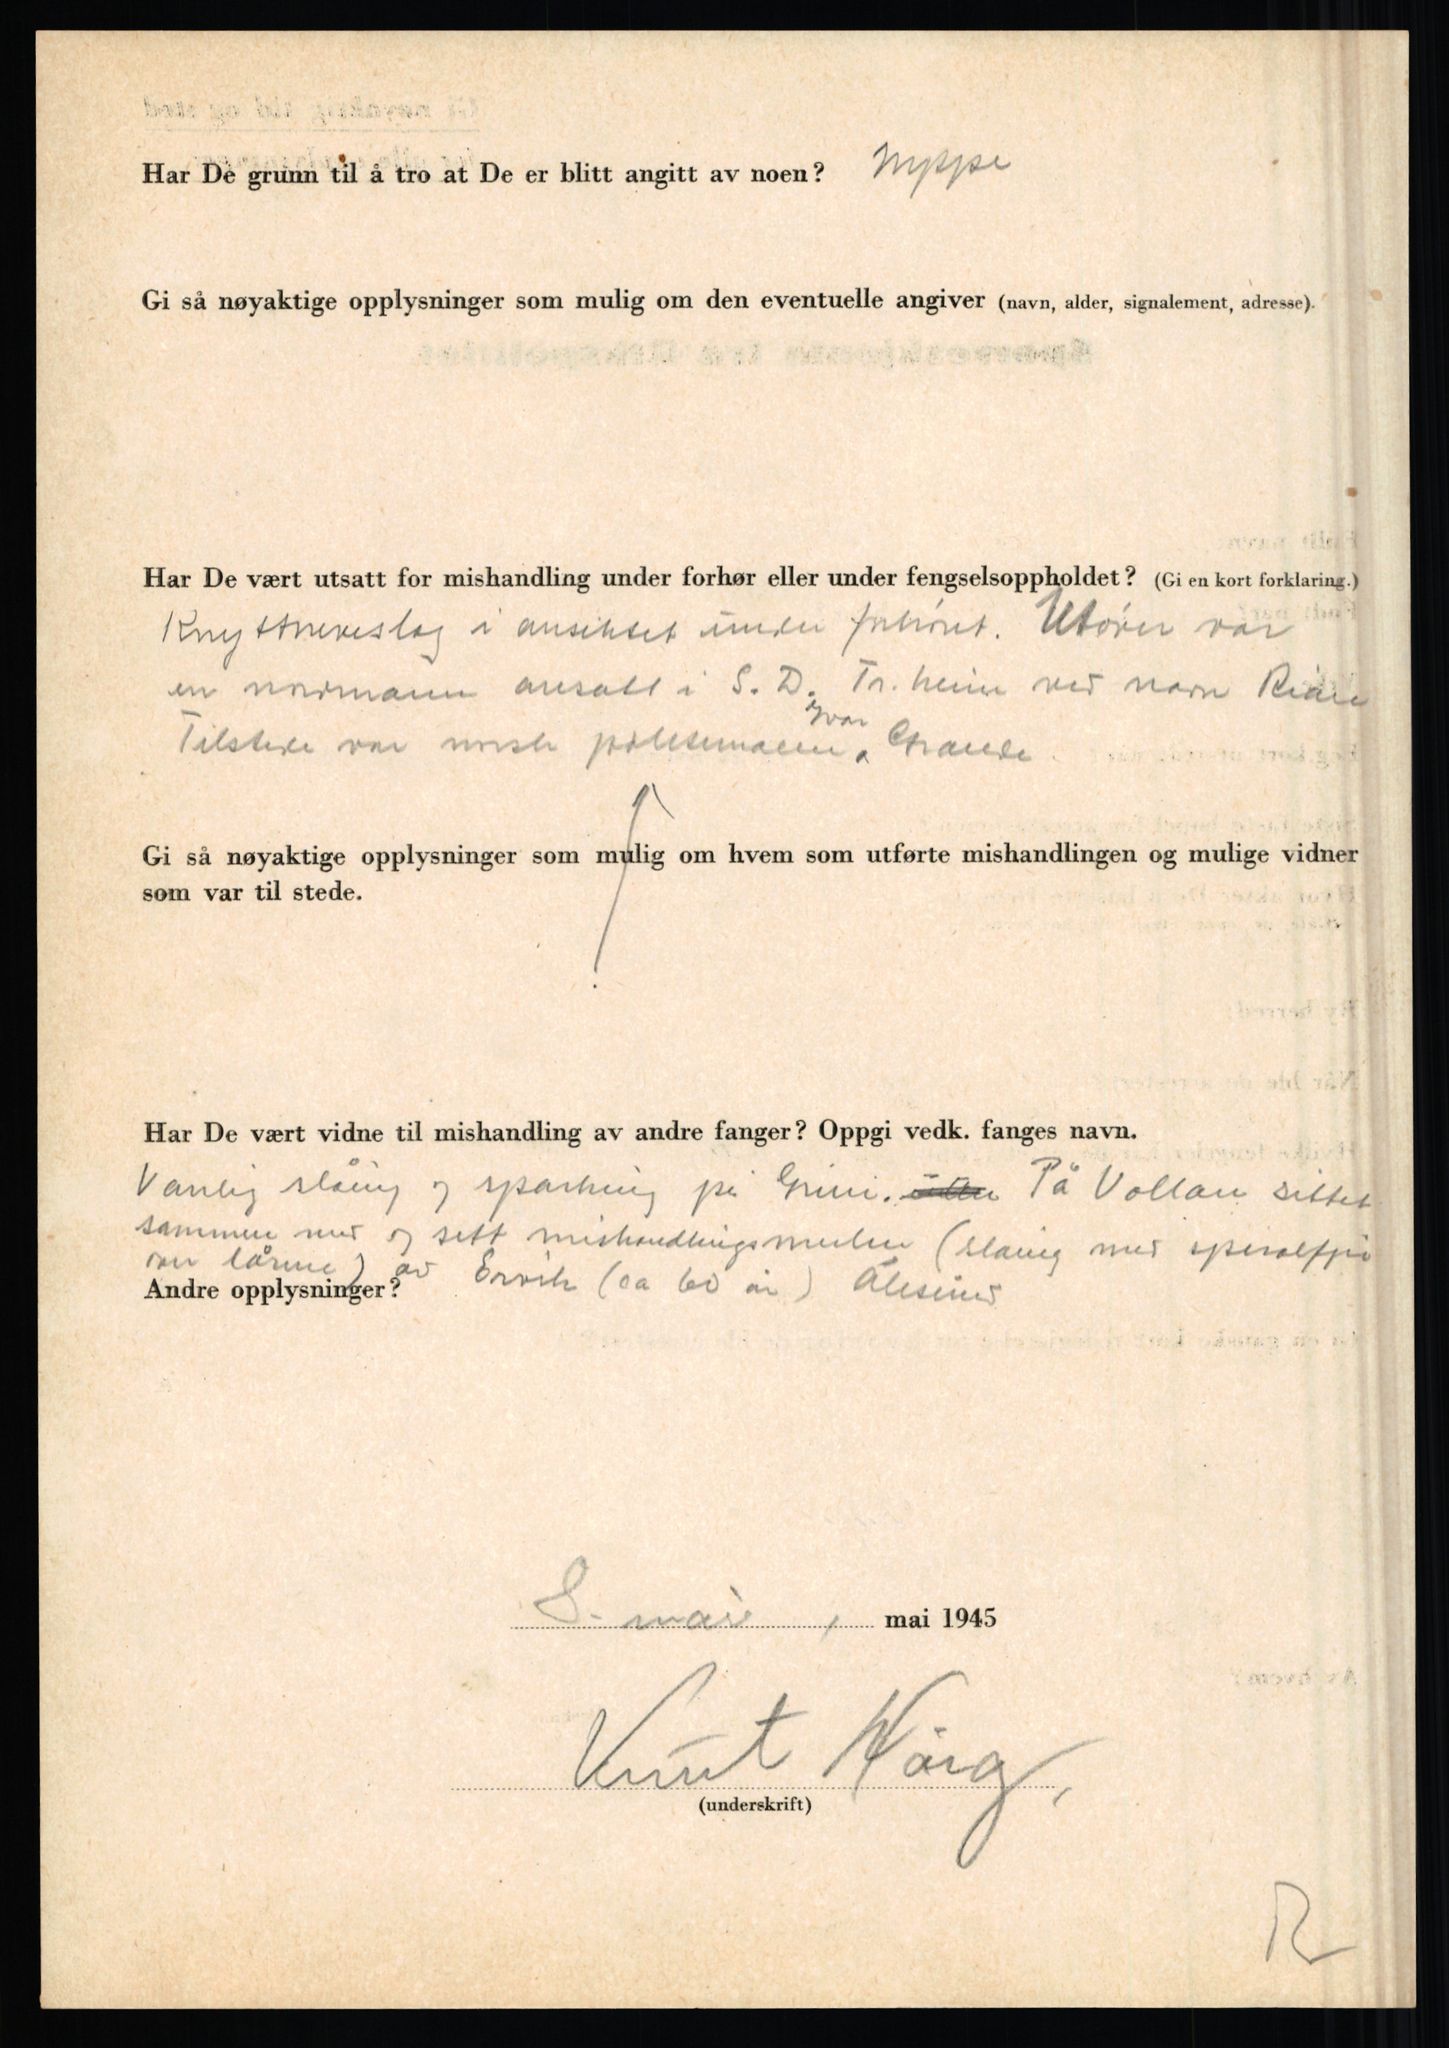 Har De grunn til å tro at De er blitt angitt av noen? Neppe
Gi så nøyaktige opplysninger som mulig om den eventuelle angiver (navn, alder, signalement, adresse).
Har De vært utsatt for mishandling under forhør eller under fengselsoppholdet? (Gi en kort forklaring.)
Knyttneveslag i ansiktet under forhøret. Utøver var
en nordmann ansatt i S. D. Tr. heim ved navn
Tilstede var norsk politimann Ivar Grande.
Gi så nøyaktige opplysninger som mulig om hvem som utførte mishandlingen og mulige vidner
som var til stede.
Har De vært vidne til mishandling av andre fanger? Oppgi vedk. fanges navn.
Vanlig slåing og sparking på Grini. På Vollan sittet
sammen med og sett mishandlingsmerkene (slåing med
over lårene) av Ervik (ca 60 år) Ålesund
Andre opplysninger?
8. mai, mai 1945
Knut Hårg.
(underskrift)
R